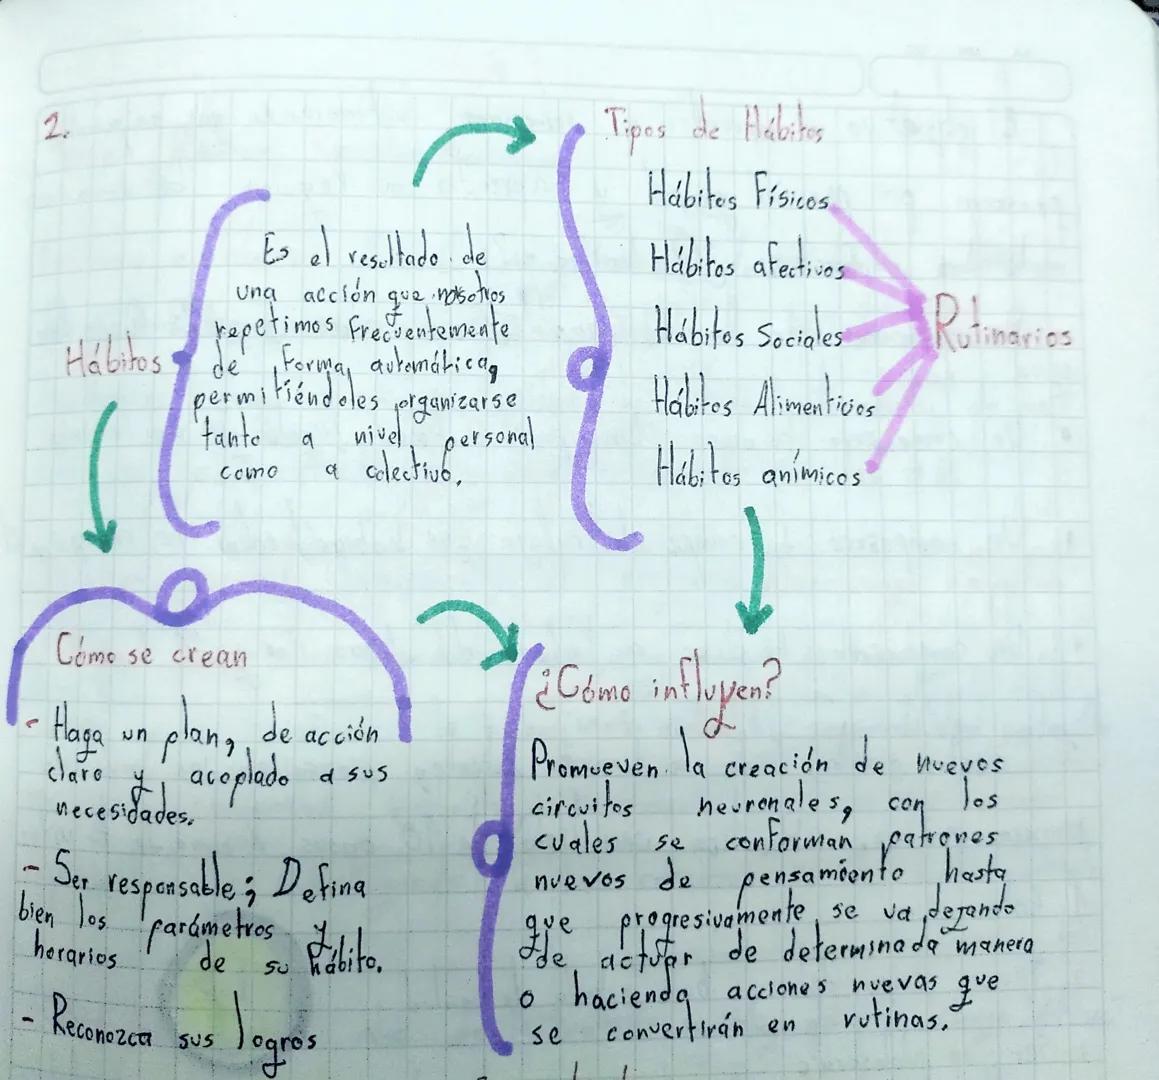 2.
Hábitos
Es el resultado de
una acción que nosotros
repetimos frecuentemente
de forma automática,
permitiéndoles organizarse
tanto a nivel personal
como a colectivo.
Tipos de Hábitos
Hábitos Físicos
Hábitos afectivos
Hábitos Sociales
Hábitos Alimenticios
Hábitos anímicos
Rutinarios
Cómo se crean
- Haga un plan, de acción
claro y acoplado a sus
necesidades.
- Ser responsable; Defina
bien los parámetros y
horarios de su hábito.
- Reconozca sus logros
¿Cómo influyen?
Promueven la creación de nuevos
circuitos neuronales, con los
cuales se conforman patrones
nuevos de pensamiento hasta
que progresivamente se va dejando
de actuar de determinada manera
o haciendo acciones nuevas que
se convertirán en rutinas.